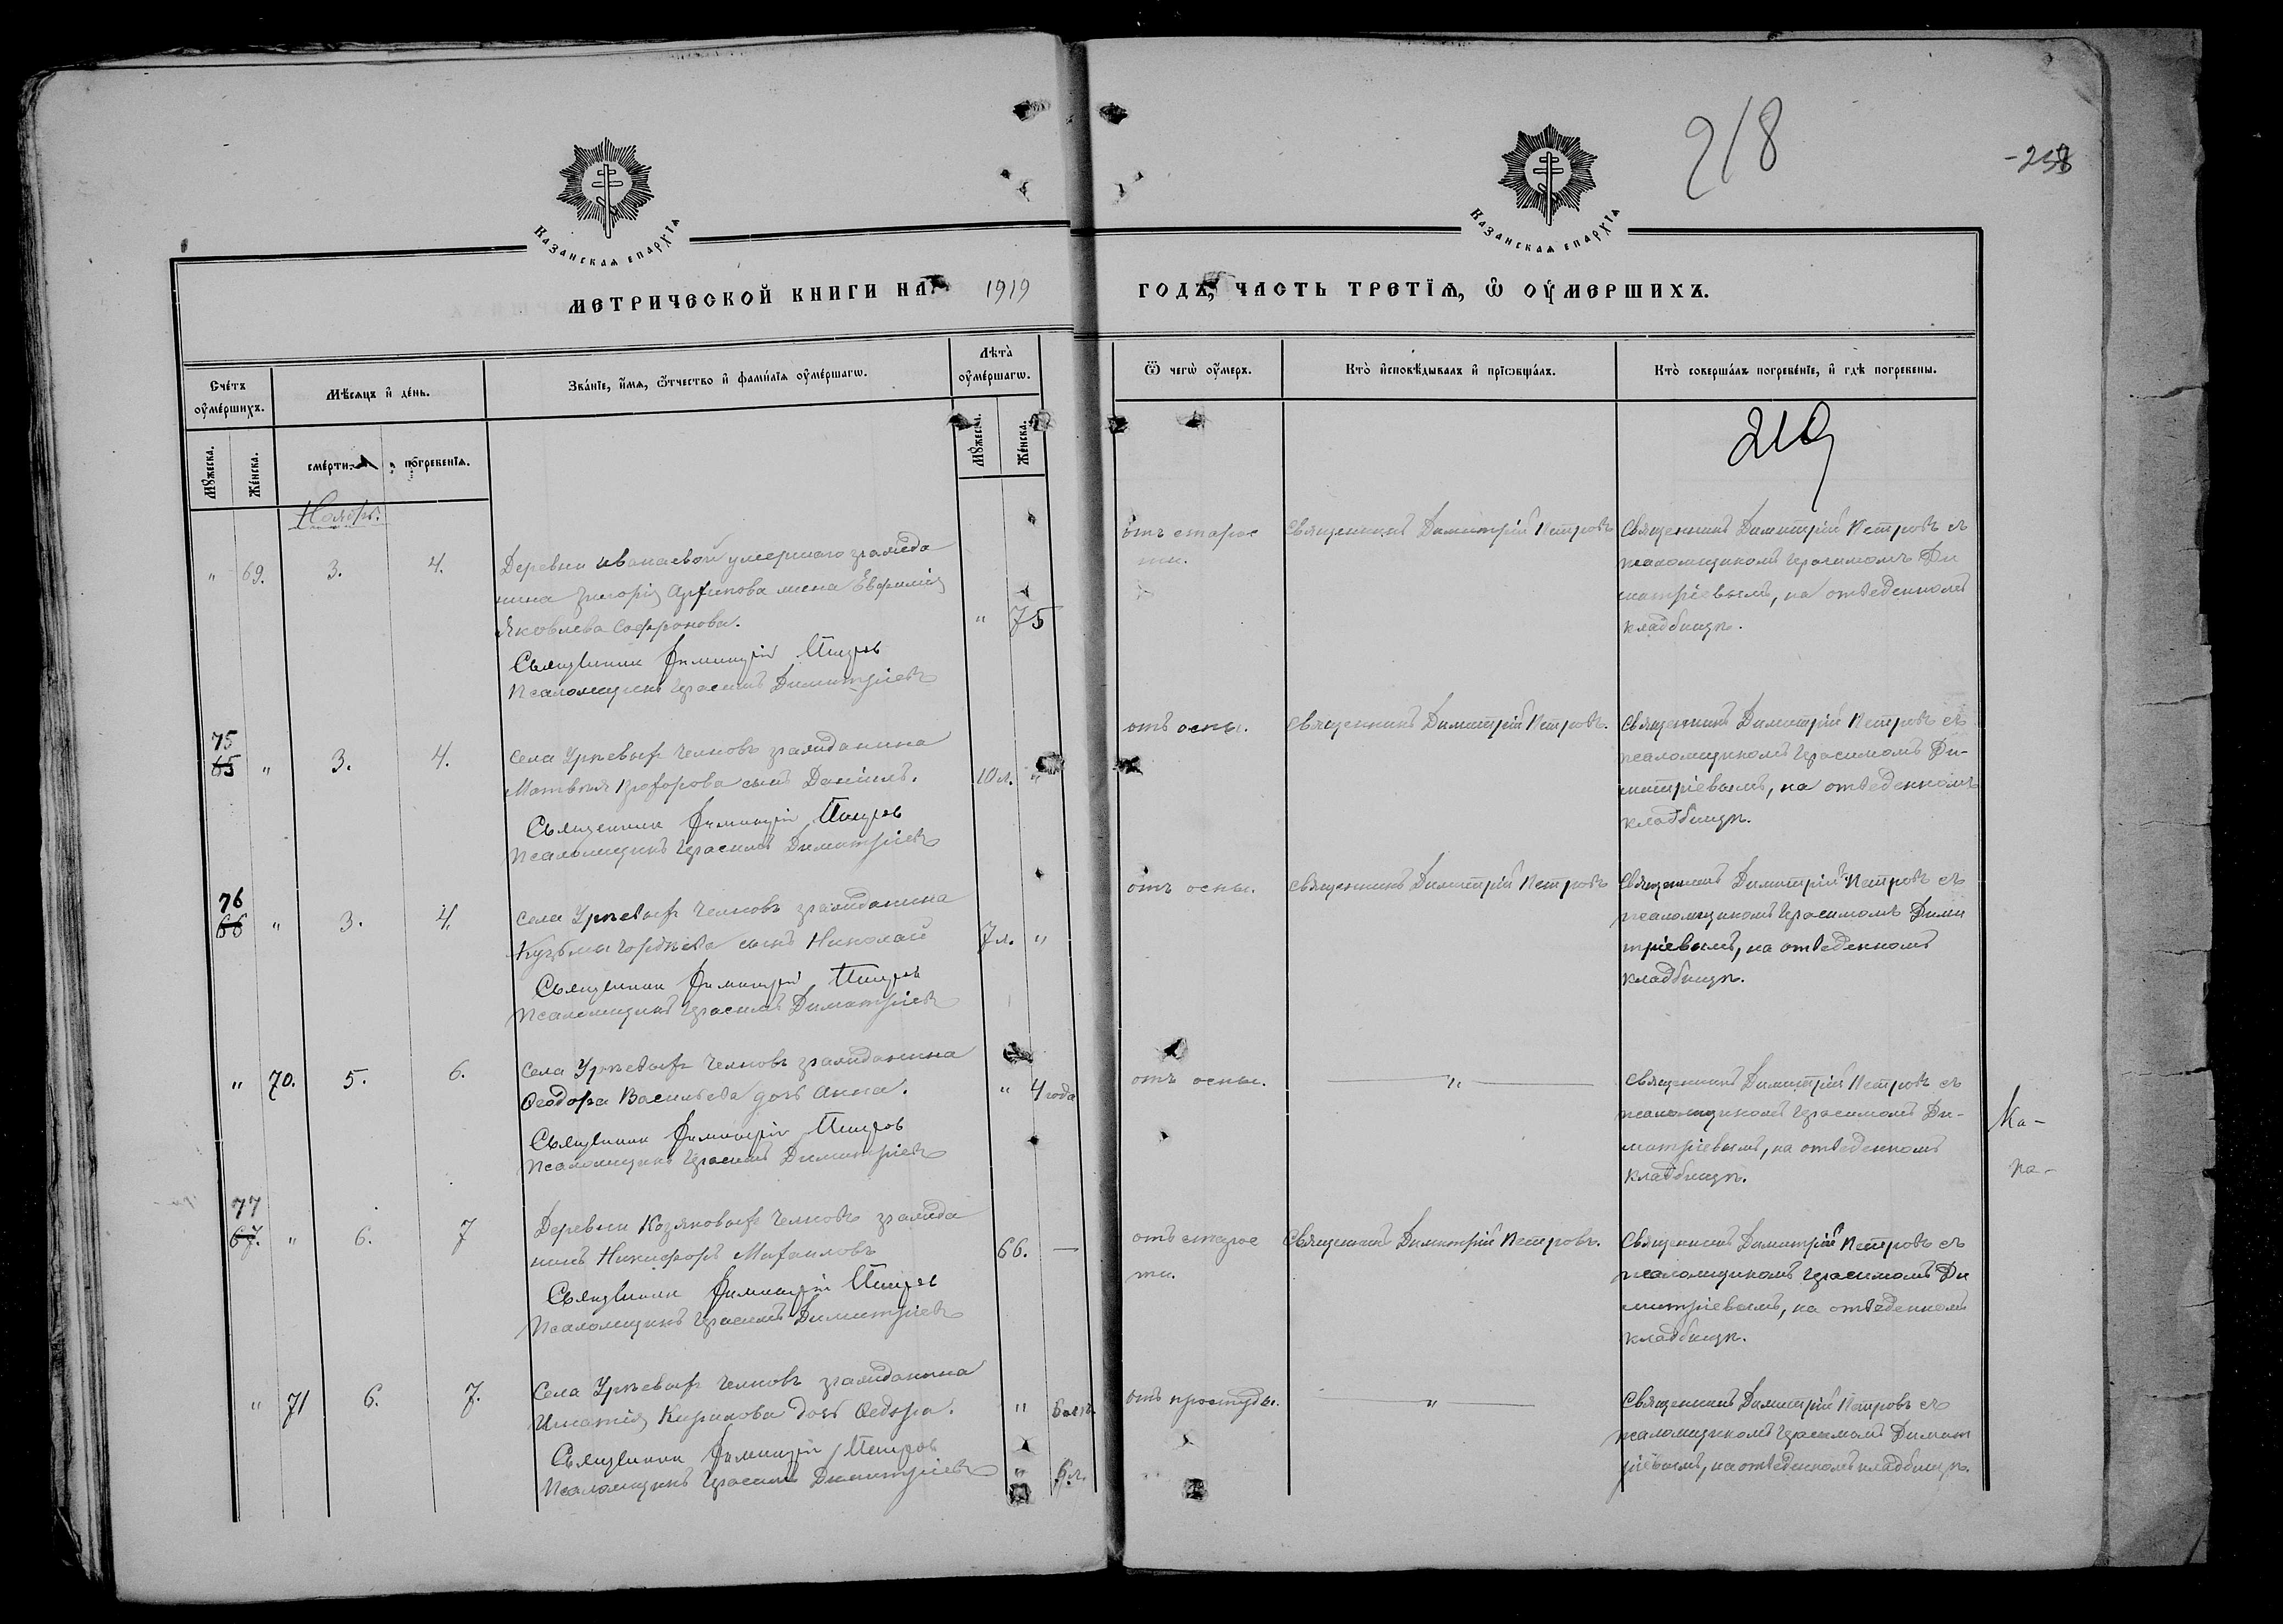 218
-258
Казанская епархїѧ
Казанская епархїѧ
Метрической книги на 1919 годъ, часть третїѧ, ѡ оумершихъ.
Счетъ оумершихъ.
Мѣсяцъ и день.
Званїе, имѧ, ѿчество и фамилїѧ оумершагѡ.
Лѣта оумершагѡ.
Ѿ чегѡ оумеръ.
Кто исповѣдывалъ и прїѡбщалъ.
Кто совершалъ погребенїе, и гдѣ погребены.
Мужеска.
Женска.
смерти.
погребенїѧ.
Мужеск.
Женска.
219
Ноябрь.
" 69. 3. 4.
Деревни Иванаевой умершаго гражда
нина Григорія Архипова жена Евфимія
Яковлева Софронова.
" 75
Священник Димитрий Петров
Псаломщикъ Герасимъ Димитріевъ
отъ старос
ти.
Священникъ Димитрій Петровъ
Священникъ Димитрій Петровъ съ
псаломщикомъ Герасимомъ Ди
митріевымъ, на отведенномъ
кладбищѣ.
75
65 " 3. 4.
Села Урѣевыхъ Челновъ гражданина
Матвѣя Прохорова сынъ Даніилъ.
10 л. "
Священник Димитрий Петров
Псаломщикъ Герасимъ Димитріевъ
отъ оспы.
Священникъ Димитрій Петровъ.
Священникъ Димитрій Петровъ съ
псаломщикомъ Герасимомъ Ди-
митріевымъ, на отведенномъ
кладбищѣ.
76
66 " 3. 4.
Села Урѣевыхъ Челновъ гражданина
Кузьмы Гордѣева сынъ Николай
7 л. "
Священник Димитрий Петров
Псаломщикъ Герасимъ Димитріевъ
отъ оспы.
Священникъ Димитрій Петровъ
Священникъ Димитрій Петровъ съ
псаломщикомъ Герасимомъ Дими
тріевымъ, на отведенномъ
кладбищѣ.
" 70. 5. 6.
Села Урѣевыхъ Челновъ гражданина
Ѳеодора Васильева дочь Анна.
" 4 года
Священник Димитрий Петров
Псаломщикъ Герасимъ Димитріевъ
отъ оспы.
"
Священникъ Димитрій Петровъ съ
псаломщикомъ Герасимомъ Ди-
митріевымъ, на отведенномъ
кладбищѣ.
77
67. " 6. 7
Деревни Козяковыхъ Челновъ гражда
нинъ Никифоръ Михаиловъ
66. —
Священник Димитрий Петров
Псаломщикъ Герасимъ Димитріевъ
отъ старос
ти.
Священникъ Димитрій Петровъ.
Священникъ Димитрій Петровъ съ
псаломщикомъ Герасимомъ Ди
митріевымъ, на отведенномъ
кладбищѣ.
" 71 6. 7.
Села Урѣевыхъ Челновъ гражданина
Игнатія Кирилова дочь Ѳедора.
" 6 лѣтъ
Священник Димитрий Петров
Псаломщикъ Герасимъ Димитріевъ
" 6 л.
отъ простуды.
"
Священникъ Димитрій Петровъ съ
псаломщикомъ Герасимомъ Димит
ріевымъ, на отведенномъ кладбищѣ.